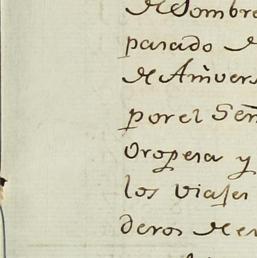 de Sombre
parado de
de Aniver
por el Señ
Oropesa y
los viajes
deros de